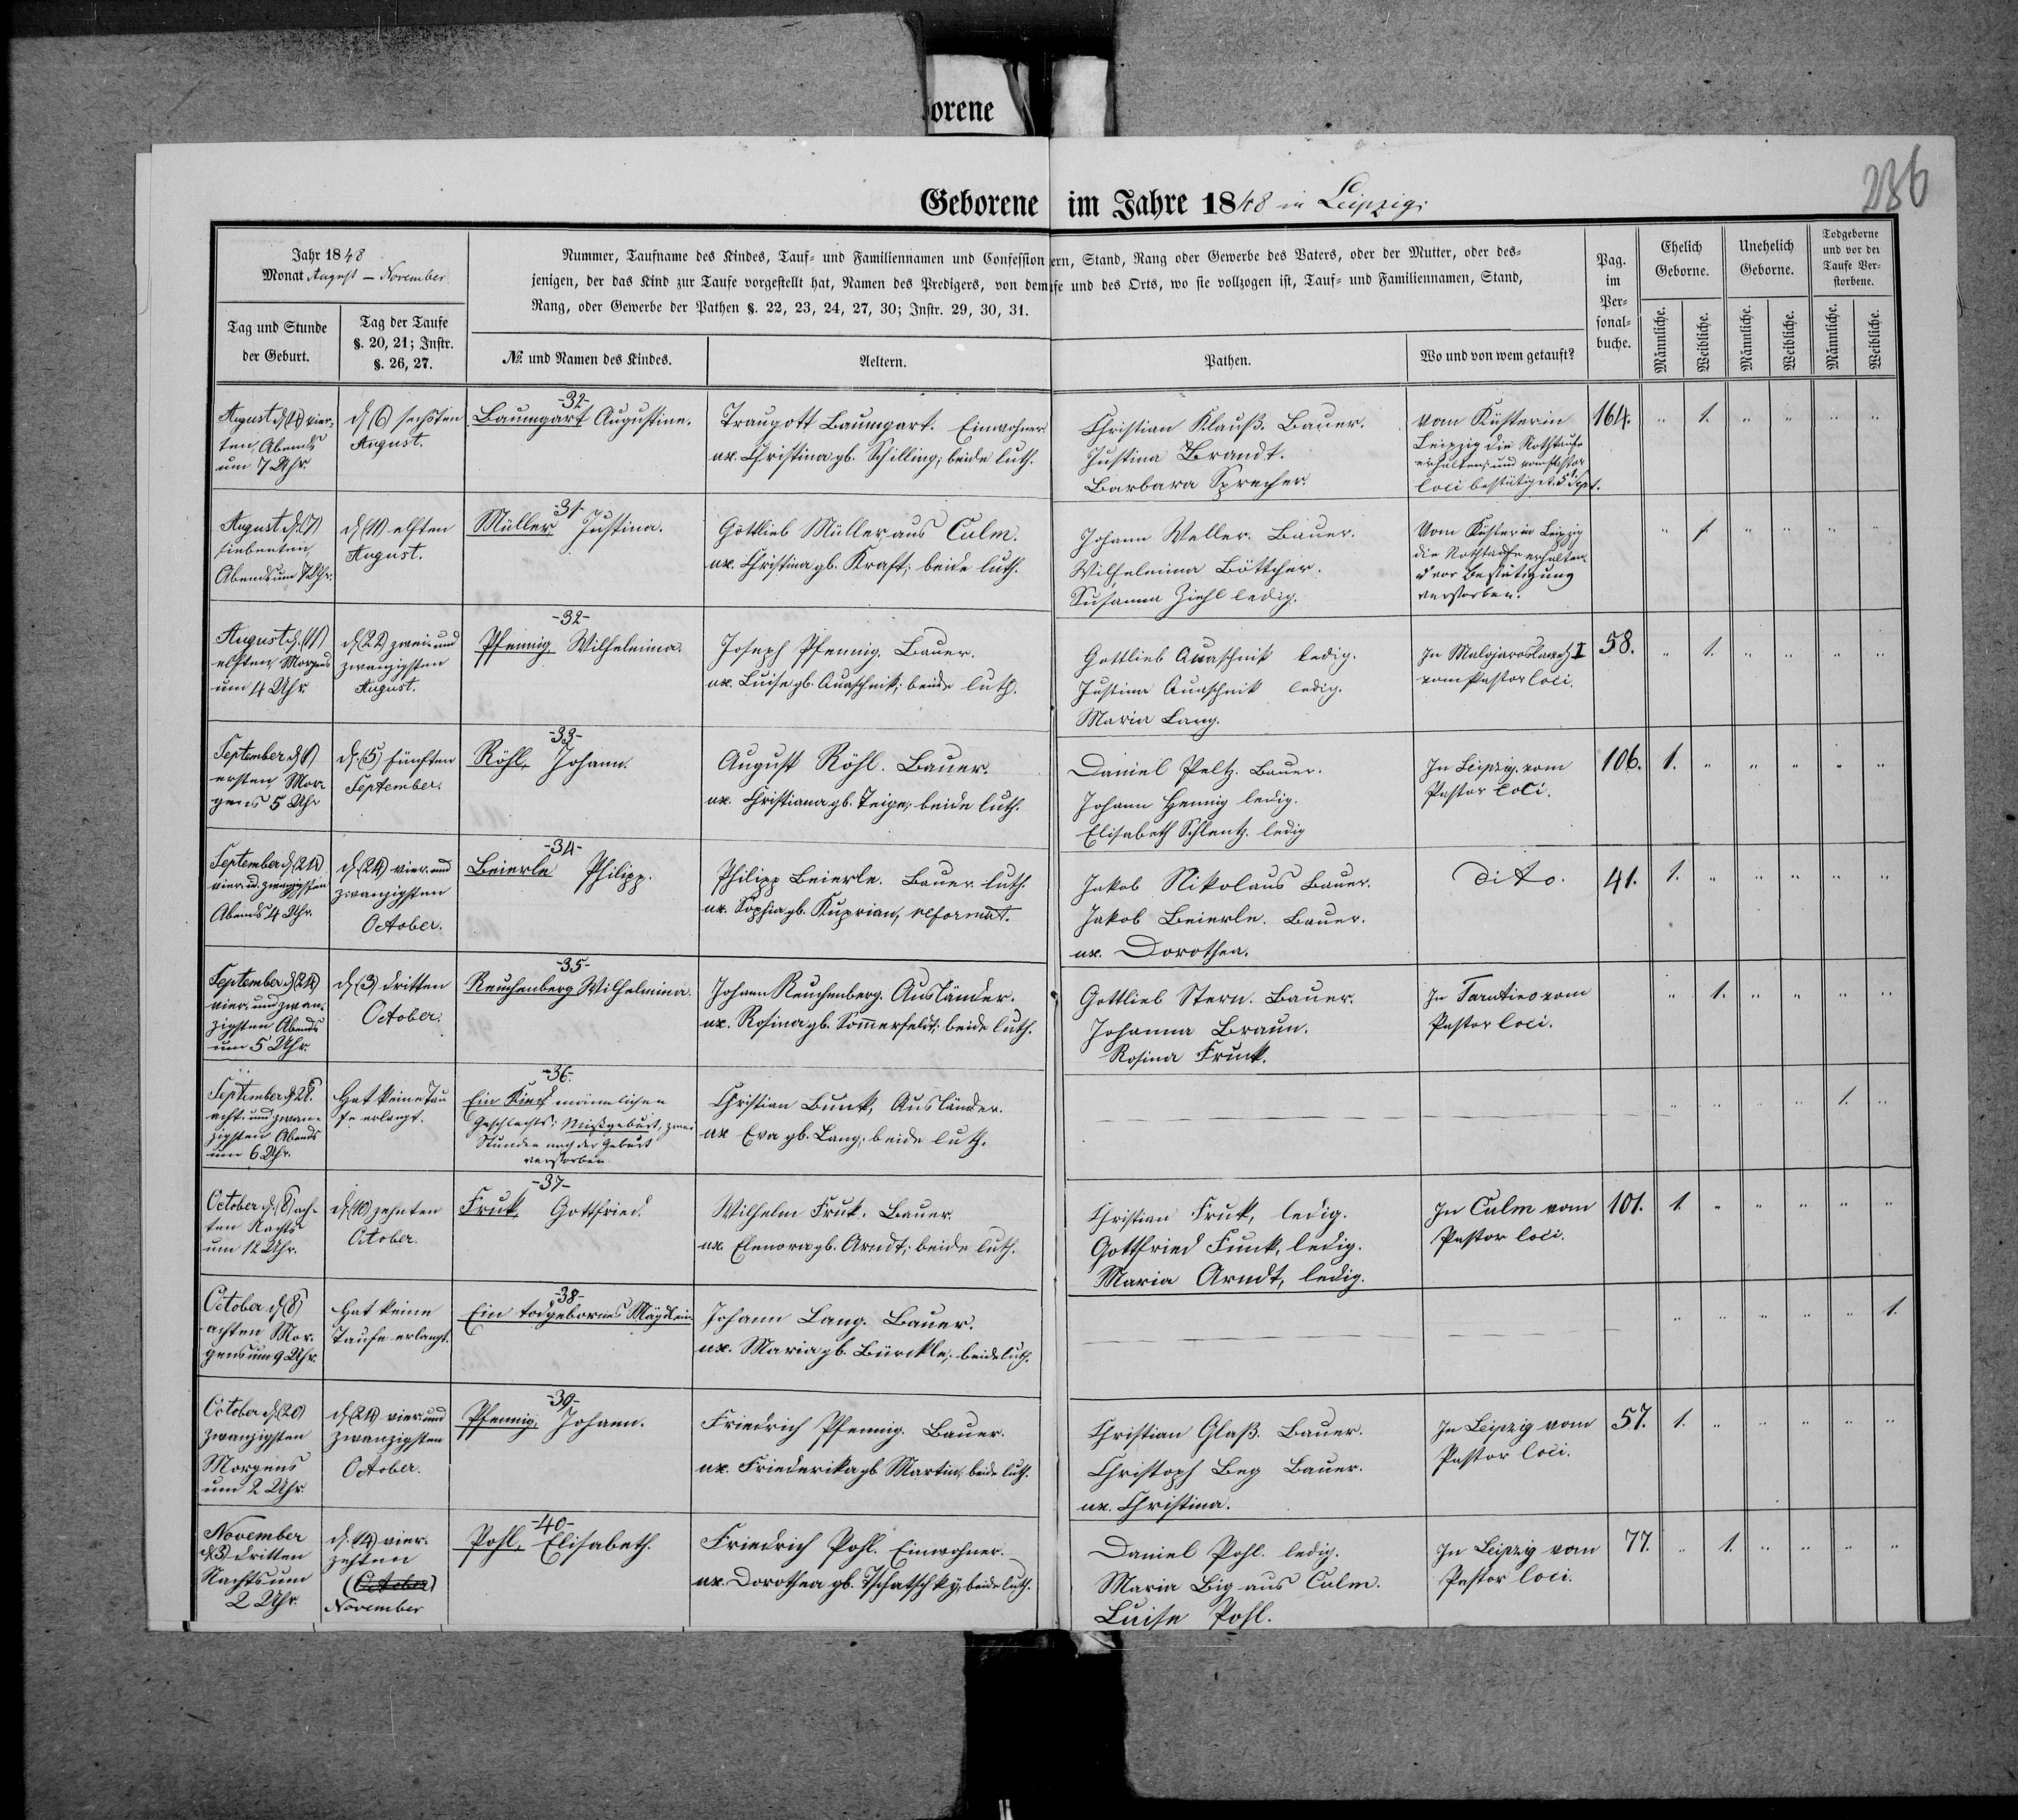 orene
286
Geborene im Jahre 1848 in Leipzig.
Jahr 1848
Monat August – November
Nummer, Taufname des Kindes, Tauf= und Familiennamen und Confession ern, Stand, Rang oder Gewerbe des Vaters, oder der Mutter, oder des=
jenigen, der das Kind zur Taufe vorgestellt hat, Namen des Predigers, von dem fe und des Orts, wo sie vollzogen ist, Tauf= und Familiennamen, Stand,
Rang, oder Gewerbe der Pathen §. 22, 23, 24, 27, 30; Instr. 29, 30, 31.
Tag und Stunde
der Geburt.
Tag der Taufe
§. 20, 21; Instr.
§. 26, 27.
№ und Namen des Kindes.
Aeltern.
Pathen.
Wo und von wem getauft?
Pag.
im
Per=
sonal=
buche.
Ehelich
Geborne.
Unehelich
Geborne.
Todgeborne
und vor der
Taufe Ver=
storbene.
Männliche.
Weibliche.
Männliche.
Weibliche.
Männliche.
Weibliche.
August d. (4) vier-
ten, Abends
um 7 Uhr.
d. (6) sechsten
August.
-32-
Baumgart Augustine.
Traugott Baumgart. Einwohner.
ux. Christina gb. Schilling; beide luth.
Christian Klauß. Bauer.
Justina Brandt.
Barbara Sprecher.
vom Küster in
Leipzig die Nothtaufe
erhalten und vom Pastor
loci bestätiget. 5t Sept.
164. " 1. " " " "
August d. (7)
siebenten,
Abends um 7 Uhr.
d. (11) elften
August.
-31-
Müller Justina.
Gottlieb Müller aus Culm.
ux. Christina gb. Kraft; beide luth.
Johann Weller. Bauer.
Wilhelmina Böttcher.
Susanna Ziehl ledig.
Vom Küster in Leipzig
die Nothtaufe erhalten
u vor Bestätigung
verstorben.
" 1 " " " "
August d. (11)
elften, Morgens
um 4 Uhr
d. (22) zwei- und
zwanzigsten
August.
-32-
Pfennig Wilhelmina.
Joseph Pfennig. Bauer.
ux. Luise gb. Quaschnik; beide luth.
Gottlieb Quaschnik ledig.
Justina Quaschnik ledig.
Maria Lang.
In Malojaroslawetz I
vom Pastor loci.
58. " 1. " " " "
September d. (1)
ersten, Mor-
gens 5 Uhr
d. (5) fünften
September.
-33-
Röhl, Johann.
August Röhl. Bauer.
ux. Christiana gb. Teige; beide luth.
Daniel Peltz. Bauer.
Johann Hennig ledig.
Elisabeth Schlentz. ledig
In Leipzig. vom
Pastor loci.
106. 1. " " " " "
September d. (24)
vier u. zwanzigsten
Abends 4 Uhr.
d. (24) vier und
zwanzigsten
October.
-34-
Beierle Philipp.
Philipp Beierle. Bauer luth.
ux. Sophia gb. Kuprian, reformat.
Jakob Nikolaus Bauer.
Jakob Beierle. Bauer.
ux. Dorothea.
dito.
41. 1. " " " " "
September d. (24)
vier- und zwan-
zigsten Abends
um 5 Uhr.
d. (3) dritten
October.
-35-
Reuchenberg Wilhelmina.
Johann Reuchenberg. Ausländer.
ux. Rosina gb. Sommerfeldt; beide luth.
Gottlieb Stern. Bauer.
Johanna Braun.
Rosina Fruck.
In Tarutino vom
Pastor loci.
" 1. " " " "
September d. 28.
acht- und zwan-
zigsten Abends
um 6 Uhr.
Hat keine Tau
fe erlangt.
-36-
Ein Kind männlichen
Geschlechts; Mißgeburt, zwei
Stunden nach der Geburt
verstorben.
Christian Bunk, Ausländer.
ux Eva gb. Lang; beide luth.
" " " " 1. "
October d. (8) ach-
ten Nachts
um 12 Uhr.
d. (10) zehnten
October.
-37-
Fruk, Gottfried.
Wilhelm Fruk. Bauer.
ux. Elenora gb. Arndt; beide luth.
Christian Fruk, ledig.
Gottfried Funk, ledig.
Maria Arndt, ledig.
In Culm vom
Pastor loci.
101. 1. " " " " "
October d. (8)
achten Mor-
gens um 9 Uhr.
Hat keine
Taufe erlangt.
-38-
Ein todgebornes Mägdlein
Johann Lang. Bauer.
ux. Maria gb. Bürckle; beide luth.
" " " " " 1.
October d. (20)
zwanzigsten
Morgens
um 2 Uhr
d. (24) vier und
zwanzigsten
October.
-39-
Pfennig, Johann.
Friedrich Pfennig. Bauer.
ux. Friederika gb Martin; beide luth.
Christian Glaß. Bauer.
Christoph Beg Bauer.
ux. Christina.
In Leipzig vom
Pastor loci.
57. 1. " " " " "
November
d. (3) dritten
Nachts um
2 Uhr.
d. (14) vier-
zehten
(October)
November
-40-
Pohl, Elisabeth.
Friedrich Pohl. Einwohner.
ux. Dorothea gb. Tschatschky; beide luth.
Daniel Pohl. ledig.
Maria Big aus Culm.
Luise Pohl.
In Leipzig vom
Pastor loci.
77. " 1. " " " "